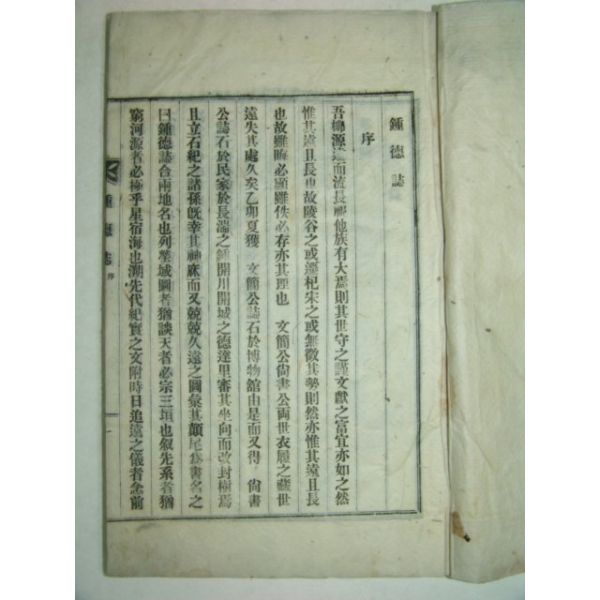 鍾德誌
序
吾柳源遠而流長視他族有大焉則其世守之謹文獻之富宜亦如之然
惟其遠且長也故陵谷之或遷杞宋之或無徵其勢則然亦惟其遠且長
也故雖晦必顯雖佚必存亦其理也 文簡公尙書公両世衣履之藏世
遠失其處久矣乙卯夏獲 文簡公誌石於博物舘由是而又得 尙書
公誌石於民家於長湍之鍾開川開城之德達里審其坐向而改封樹焉
且立石紀之諸孫旣幸其神庥而又兢兢久遠之圖彙其顛尾爲書名之
曰鍾德誌合兩地名也列塋域圖者猶談天者必宗三垣也叙先系者猶
窮河源者必極乎星宿海也溯先代紀實之文附時日追遠之儀者念前
鍾德誌 序